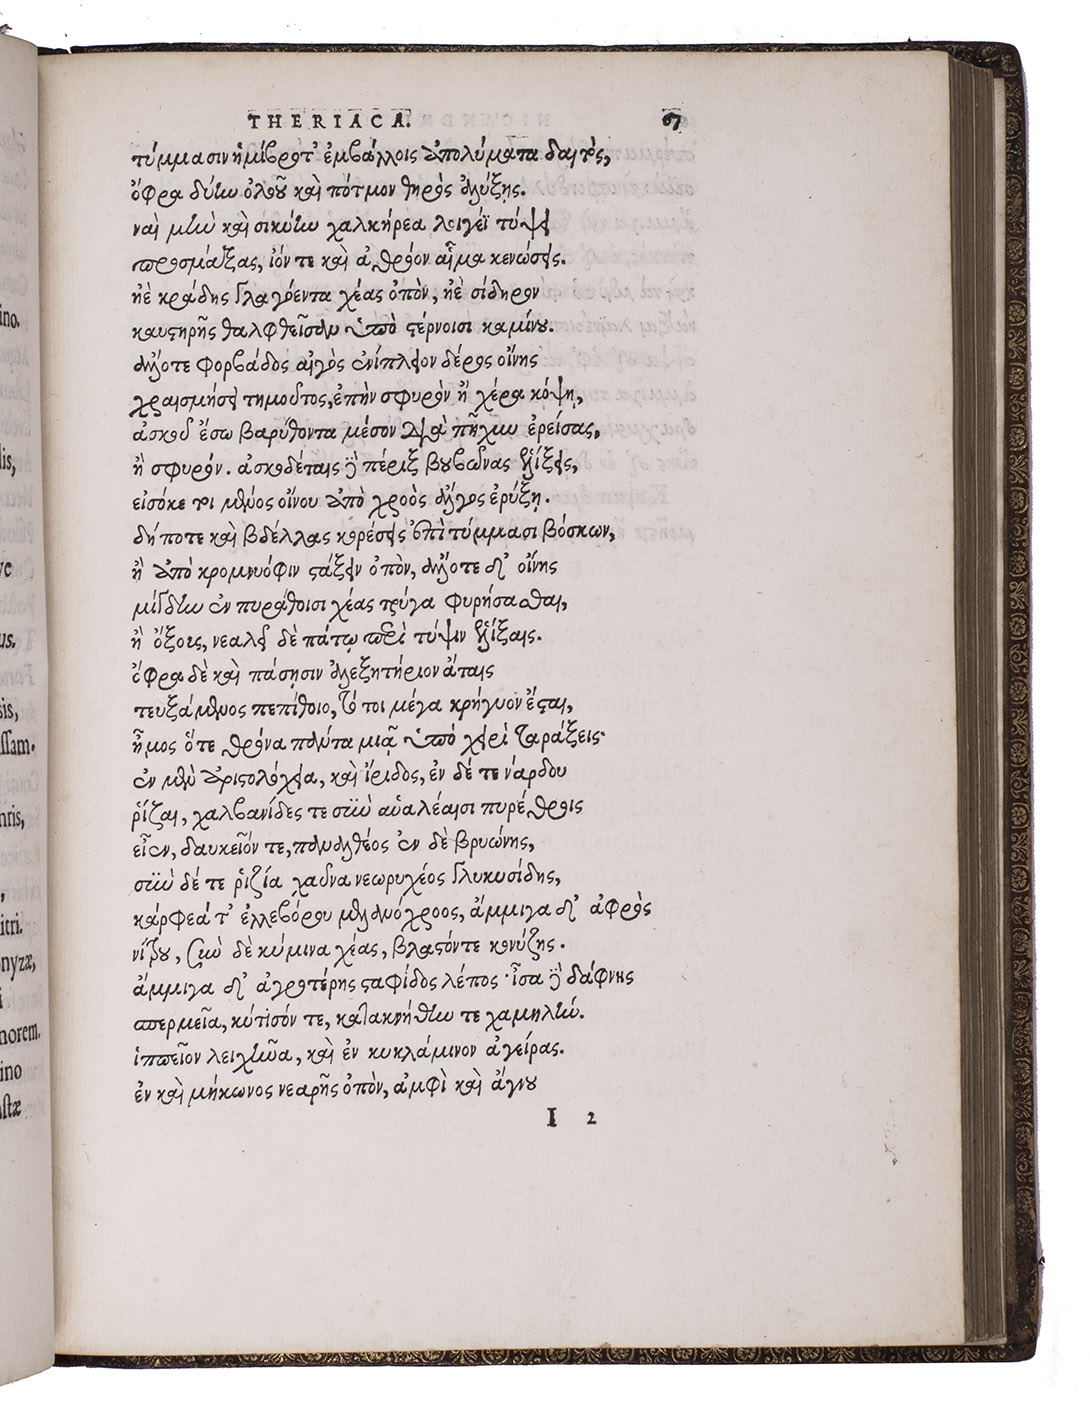 THERIACA. 67
τύμμασιν ἡμίβρωτ' ἐμβάλλοις ἀπολύματα δαιτὸς,
ὄφρα δύην ὀλοοῦ καὶ πότμον θηρὸς ἀλύξῃς.
ναὶ μὴν καὶ σικύην χαλκήρεα λοιγέϊ τύψει
προσμάξας, ἰόν τε καὶ ἀθρόον αἷμα κενώσεις.
ἠὲ κράδης γλαγόεντα χέας ὀπὸν, ἠὲ σίδηρον
καυστηρῆς θαλφθεῖσαν ὑπὸ στέρνοισι καμίνου.
ἄλλοτε φορβάδος αἰγὸς ἐνίπλειον δέρος οἴνης
χραισμήσει τημοῦτος, ἐπὴν σφυρὸν ἢ χέρα κόψῃ,
ἀσκοῦ ἔσω βαρύθοντα μέσον διὰ πῆχυν ἐρείσας,
ἢ σφυρόν. ἀσκοδέταις δὲ πέριξ βουβῶνας ἑλίξεις,
εἰσόκε τοι μένος οἴνου ἀπὸ χροὸς ἄλγος ἐρύξῃ.
δή ποτε καὶ βδέλλας κορέσεις ἐπὶ τύμμασι βόσκων,
ἢ ἀπὸ κρομνυόφιν στάξειν ὀπὸν, ἄλλοτε δ' οἴνης
μίγδην ἐν πυράθοισι χέας τρύγα φυρήσασθαι,
ἢ ὄξους, νεαλεῖ δὲ πάτῳ περὶ τύψιν ἑλίξαις.
ὄφρα δὲ καὶ πάσῃσιν ἀλεξητήριον ἄταις
τευξάμενος πεπίθοιο, τό τοι μέγα κρήγυον ἔσται,
ἦμος ὅτε θρόνα πάντα μιᾷ ὑπὸ χειρὶ ταράξεις·
ἐν μὲν ἀριστολόχεια, καὶ ἴριδος, ἐν δέ τε νάρδου
ῥίζαι, χαλβανίδες τε σὺν αὐαλέαισι πυρέθροις
εἶεν, δαυκεῖόν τε, παναλθέος ἐν δὲ βρυώνης,
σὺν δέ τε ῥιζία χαῦνα νεωρυχέος γλυκυσίδης,
κάρφεά τ' ἐλλεβόρου μελανόχροος, ἄμμιγα δ' ἀφρὸς
νίτρου, σὺν δὲ κύμινα χέας, βλαστόν τε κονύζης.
ἄμμιγα δ' ἀγροτέρης σταφίδος λέπος· ἶσα δὲ δάφνης
σπερμεῖα, κύτισόν τε, κατακνήθην τε χαμηλήν.
ἱππεῖον λειχῆνα, καὶ ἐν κυκλάμινον ἀγείρας.
ἐν καὶ μήκωνος νεαρῆς ὀπὸν, ἀμφὶ καὶ ἄγνου
I 2